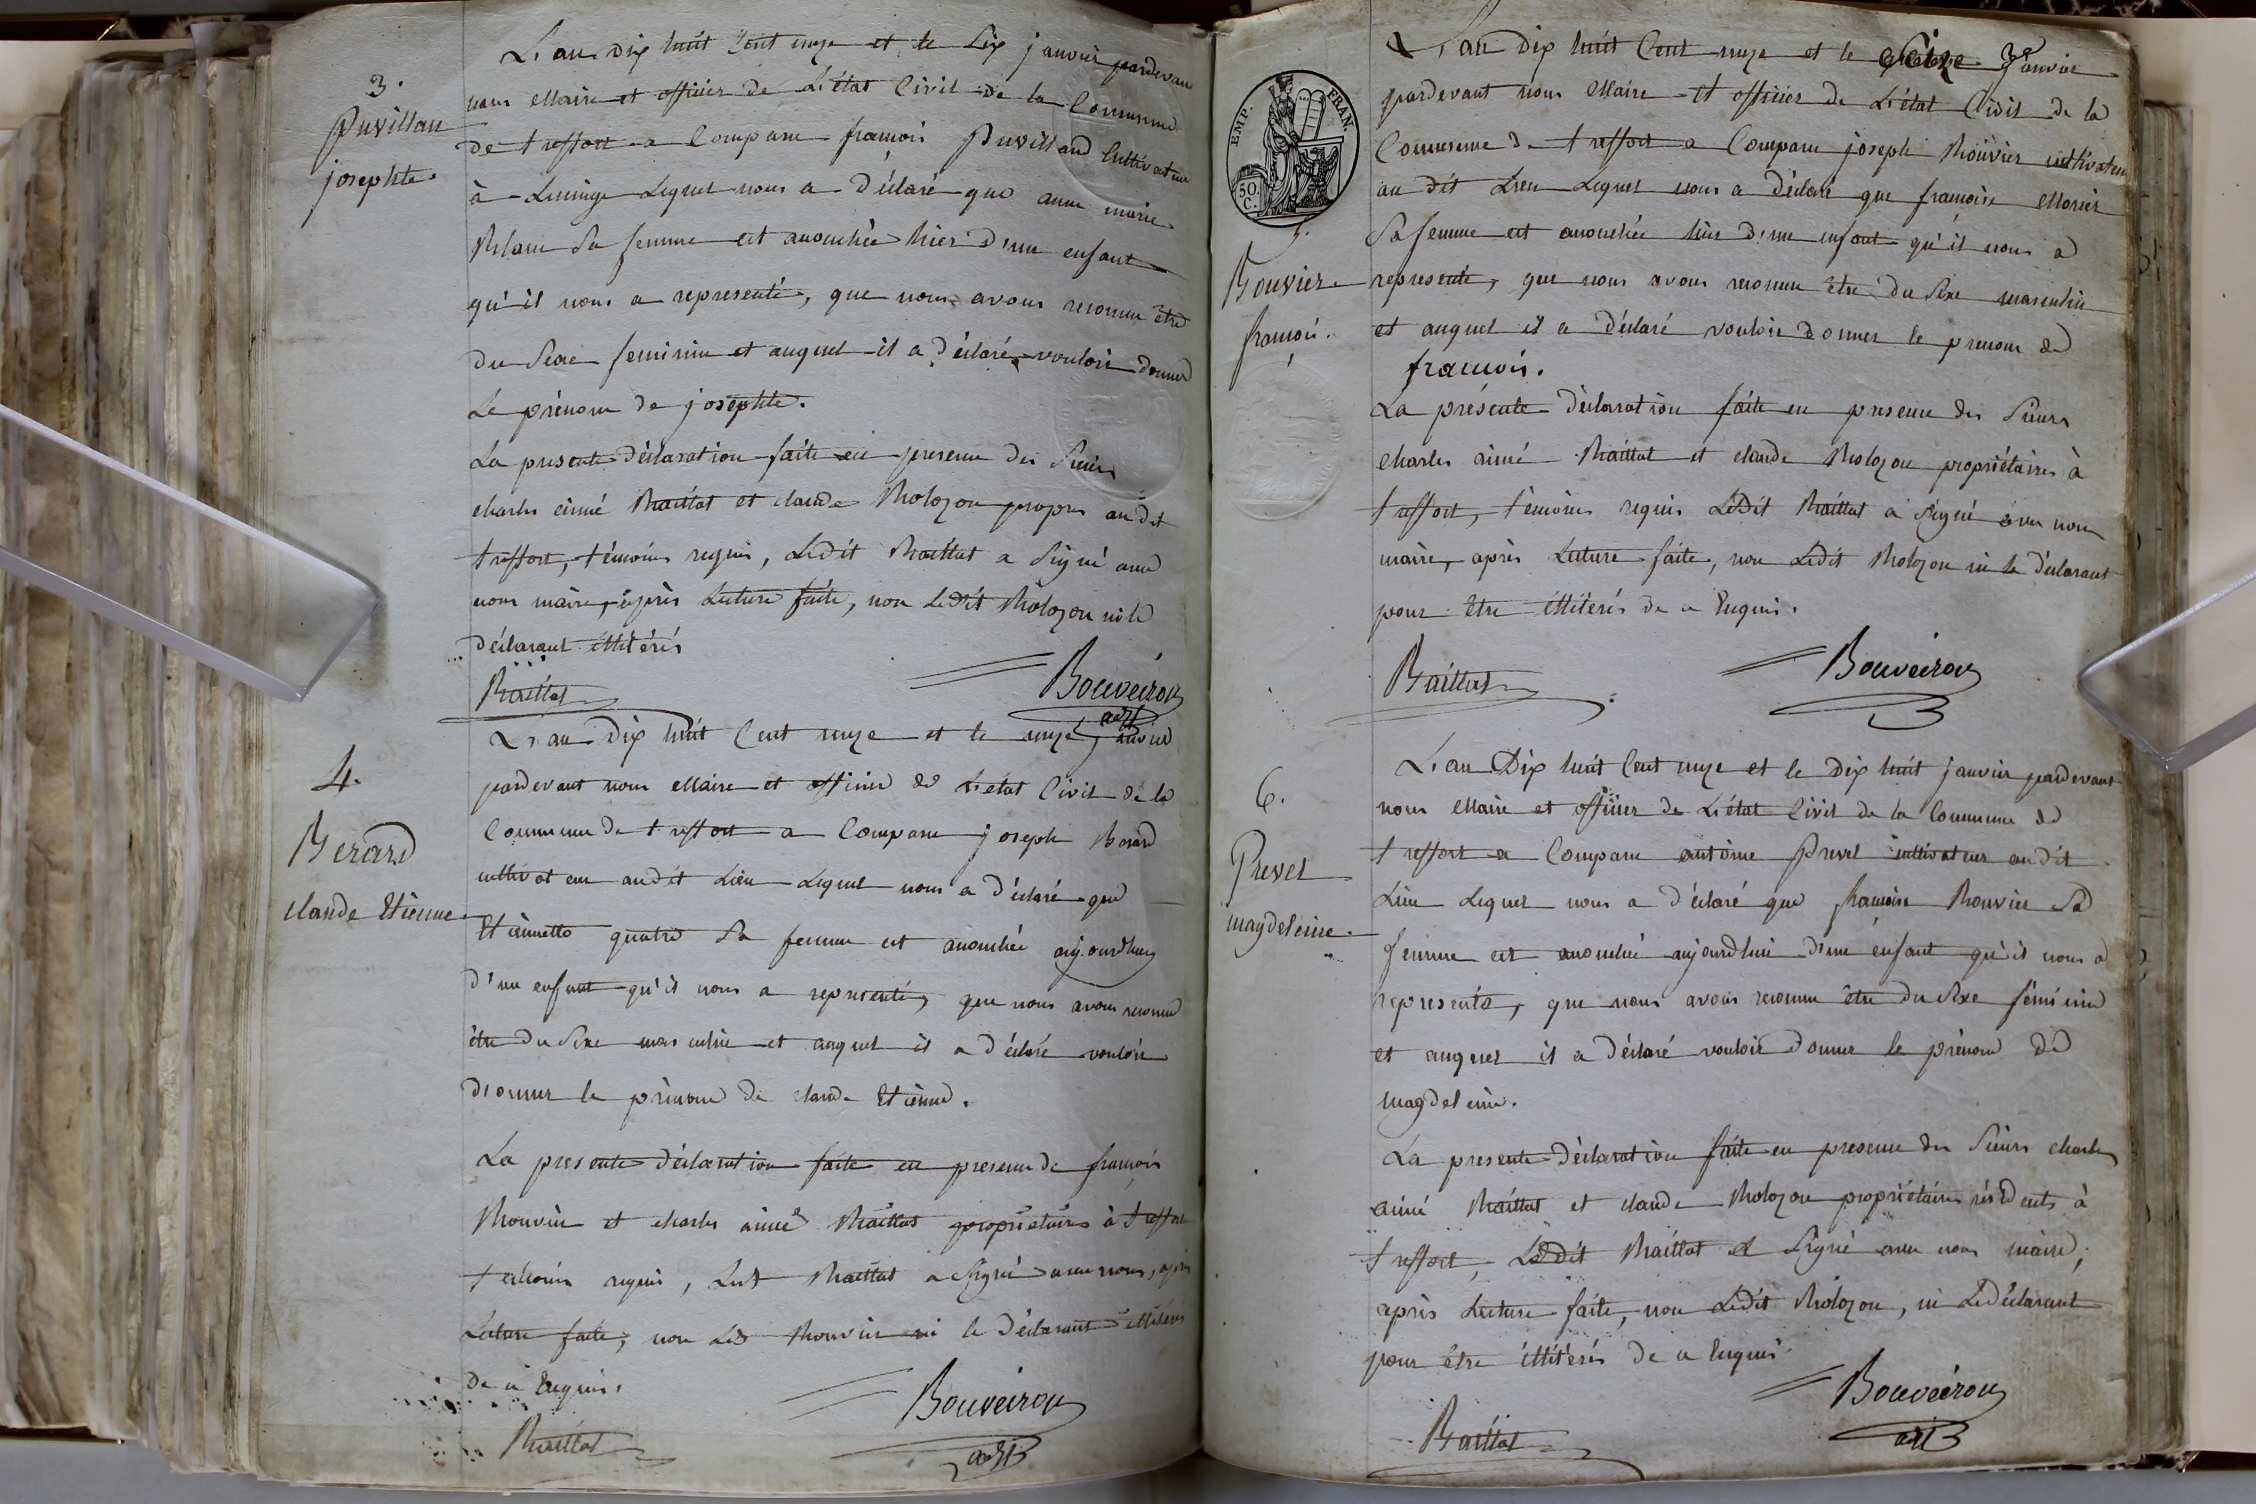 3.
Puvilland
josephte.
L'an dix huit Cent onze et le six janvier pardevant
nous Maire et officier de L'état Civil de la Commune
de treffort a Comparu françois Puvilland Cultivateur
à Lucinge Lequel nous a déclaré que anne marie
sa femme est accouchée hier d'une enfant
qu'il nous a representé, que nous avons reconnu être
du Sexe feminin et auquel il a déclaré vouloir donner
Le prénom de josephte.
La presente déclaration faite en presence des Sieurs
charles aimé Maillat et claude Molozon propres audit
treffort, témoins requis, Ledit Maillat a Signé avec
nous maire, après Lecture faite, non Ledit Molozon ni le
déclarant illitérés
Maillat Bouveiron
adjt
4.
Berard
claude Etienne
L'an Dix huit Cent onze et le onze janvier
pardevant nous Maire et officier de L'état Civil de la
Commune de treffort a Comparu joseph Berard
cultivateur audit Lieu Lequel nous a déclaré que
Etiennette quatre Sa femme est accouchée aujourdhuy
d'un enfant qu'il nous a representé, que nous avons reconnu
être du Sexe masculin et auquel il a déclaré vouloir
donner le prénom de claude Etienne.
La presente déclaration faite en presence de françois
Mouvier et charles aimé Maillat propriétaires à treffort
témoins requis, Ledt Maillat a Signé avec nous, après
Lecture faite, non Ledt Mouvier ni le déclarant illitérés
de ce Enquis.
Maillat Bouveiron
adjt
EMP. FRAN.
50.
C.
5.
Bouvier
françois.
L'an Dix huit Cent onze et le Seize Janvier
pardevant nous Maire et officier de L'état Civil de la
Commune de treffort a Comparu joseph Mouvier cultivateur
au dit Lieu Lequel nous a déclaré que françoise Morier
Sa femme est accouchée hier d'une enfant qu'il nous a
representé, que nous avons reconnu être du Sexe masculin
et auquel il a déclaré vouloir donner le prenom de
francois.
La présente déclaration faite en presence des Sieurs
charles aimé Maillat et claude Molozon propriétaires à
treffort, témoins requis Ledit Maillat a Signé avec nous
maire, après Lecture faite, non Ledit Molozon ni le déclarant
pour être illitérés de ce Enquis.
Maillat Bouveiron
6.
Prevel
magdeleine.
L'an Dix huit Cent onze et le Dix huit janvier pardevant
nous Maire et officier de L'état Civil de la Commune de
treffort a Comparu antoine Prevel cultivateur audit
Lieu Lequel nous a déclaré que françoise Mouvier Sa
femme est accouchée aujourdhui d'une enfant qu'il nous a
representé, que nous avons reconnu être du Sexe féminin
et auquel il a déclaré vouloir donner le prénom de
magdeleine.
La presente déclaration faite en presence des Sieurs charles
aimé Maillat et claude Molozon propriétaires résidents à
treffort, Ledit Maillat a Signé avec nous maire,
après Lecture faite, non Ledit Molozon, ni Le déclarant
pour être illitérés de ce Enquis
Maillat Bouveiron
adjt